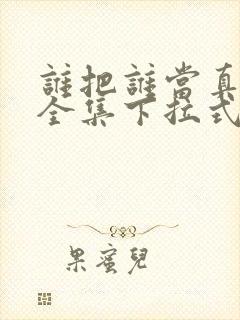 誰把誰當真
全集下拉式
果蜜兒